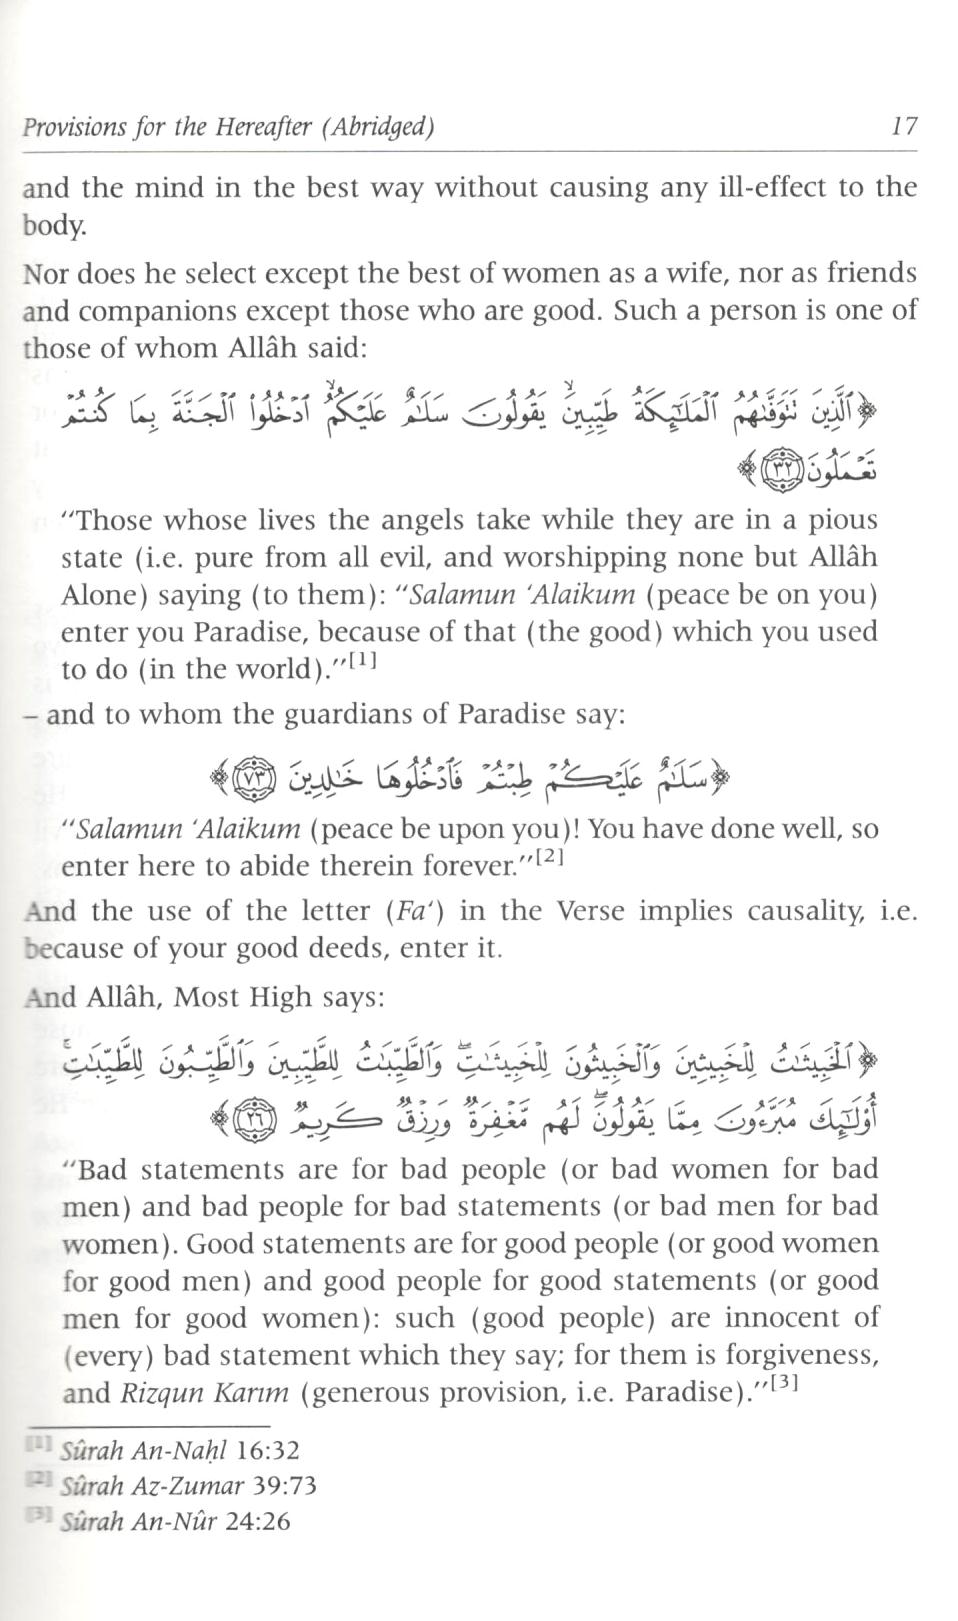 Provisions for the Hereafter (Abridged) 17
and the mind in the best way without causing any ill-effect to the
body.
Nor does he select except the best of women as a wife, nor as friends
and companions except those who are good. Such a person is one of
those of whom Allâh said:
﴿ٱلَّذِينَ تَتَوَفَّىٰهُمُ ٱلْمَلَـٰٓئِكَةُ طَيِّبِينَ ۙ يَقُولُونَ سَلَـٰمٌ عَلَيْكُمُ ٱدْخُلُوا۟ ٱلْجَنَّةَ بِمَا كُنتُمْ
تَعْمَلُونَ ٣٢﴾
“Those whose lives the angels take while they are in a pious
state (i.e. pure from all evil, and worshipping none but Allâh
Alone) saying (to them): “Salamun ‘Alaikum (peace be on you)
enter you Paradise, because of that (the good) which you used
to do (in the world).”[1]
– and to whom the guardians of Paradise say:
﴿سَلَـٰمٌ عَلَيْكُمْ طِبْتُمْ فَٱدْخُلُوهَا خَـٰلِدِينَ ٧٣﴾
“Salamun ‘Alaikum (peace be upon you)! You have done well, so
enter here to abide therein forever.”[2]
And the use of the letter (Fa‘) in the Verse implies causality, i.e.
because of your good deeds, enter it.
And Allâh, Most High says:
﴿ٱلْخَبِيثَـٰتُ لِلْخَبِيثِينَ وَٱلْخَبِيثُونَ لِلْخَبِيثَـٰتِ ۖ وَٱلطَّيِّبَـٰتُ لِلطَّيِّبِينَ وَٱلطَّيِّبُونَ لِلطَّيِّبَـٰتِ ۚ
أُو۟لَـٰٓئِكَ مُبَرَّءُونَ مِمَّا يَقُولُونَ ۖ لَهُم مَّغْفِرَةٌ وَرِزْقٌ كَرِيمٌ ٢٦﴾
“Bad statements are for bad people (or bad women for bad
men) and bad people for bad statements (or bad men for bad
women). Good statements are for good people (or good women
for good men) and good people for good statements (or good
men for good women): such (good people) are innocent of
(every) bad statement which they say; for them is forgiveness,
and Rizqun Karım (generous provision, i.e. Paradise).”[3]
[1] Sûrah An-Naḥl 16:32
[2] Sûrah Az-Zumar 39:73
[3] Sûrah An-Nûr 24:26